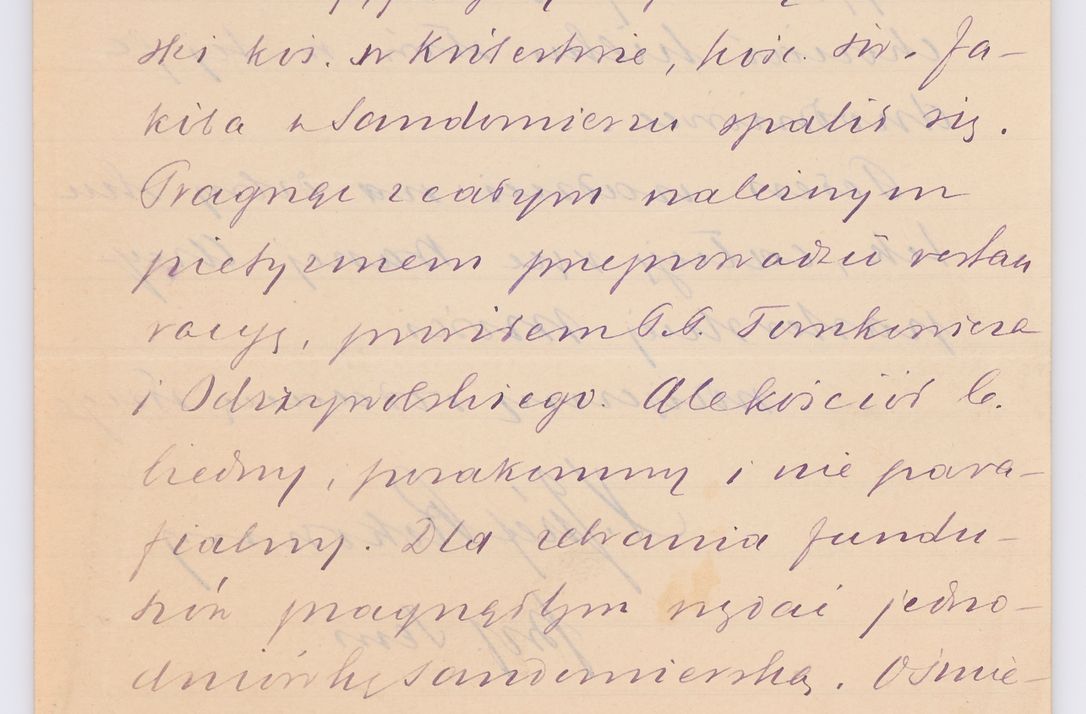 ski koś. w Królestwie, kość. św. Ja-
kóba w Sandomierzu spalił się.
Pragnąc z całym należnym
pietyzmem przeprowadzić restau
racyę, prosiłem P.P. Tomkowicza
i Odrzywolskiego. Ale kościół b.
biedny, pozakonny i nie para-
fialny. Dla zebrania fundu-
szów pragnąłbym wydać jedno-
dniówkę sandomierską. Ośmie-